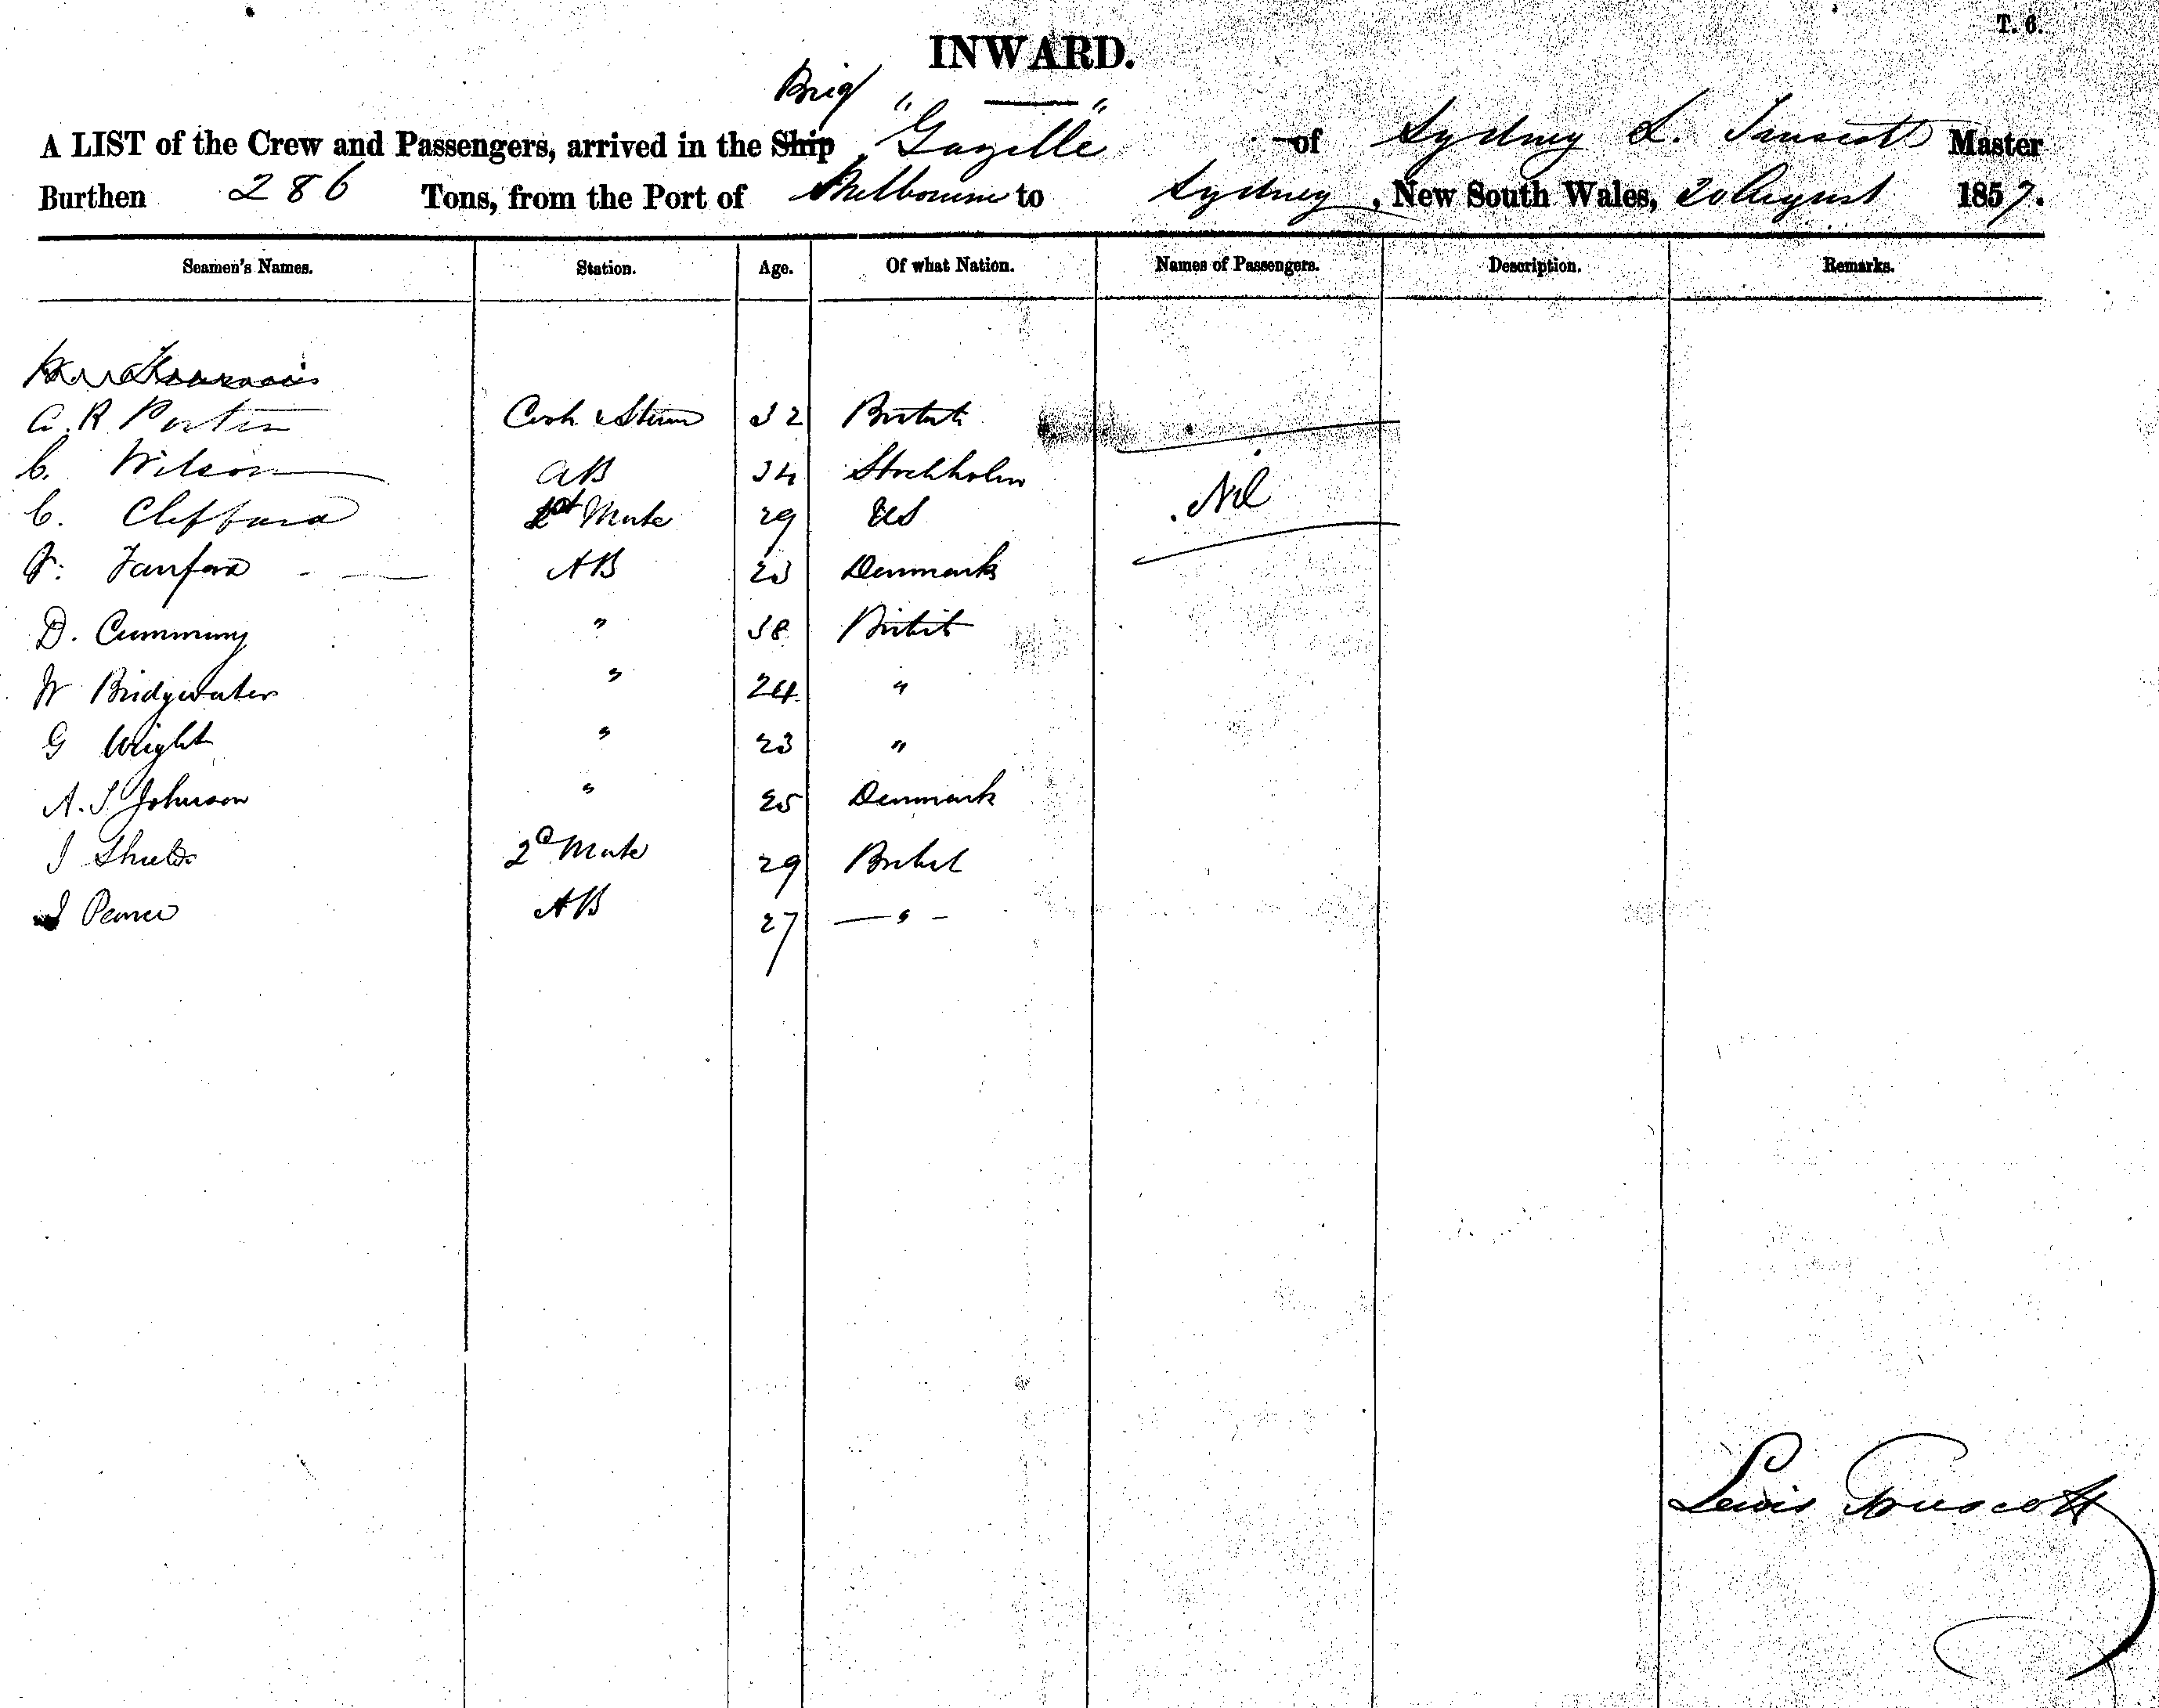 T. 6.
INWARD.
Brig
A LIST of the Crew and Passengers, arrived in the Ship "Gazelle" of Sydney L. Truscott Master
Burthen 286 Tons, from the Port of Melbourne to Sydney, New South Wales, 20 August 1857.
Seamen's Names. Station. Age. Of what Nation. Names of Passengers. Description. Remarks.
A. R Porter Cook & Stew 32 British
C. Wilson AB 34 Stockholm Nil
C. Clifford 1st Mate 29 US
F. AB 23 Denmark
D. Cumming " 38 British
W Bridgewater " 24 "
G Wright " 23 "
A. S. Johnson " 25 Denmark
J Shields 2d Mate 29 British
J Pearce AB 27 "
Lewis Truscott